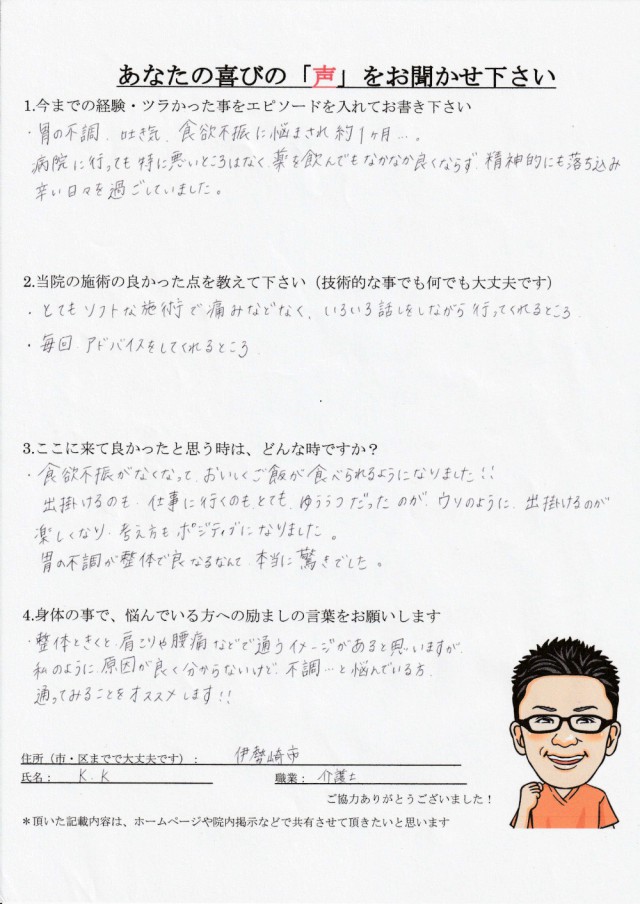 あなたの喜びの「声」をお聞かせ下さい
1.今までの経験・ツラかった事をエピソードを入れてお書き下さい
・胃の不調、吐き気、食欲不振に悩まされ約1ヶ月…。
病院に行っても特に悪いところはなく、薬を飲んでもなかなか良くならず、精神的にも落ち込み
辛い日々を過ごしていました。
2.当院の施術の良かった点を教えて下さい（技術的な事でも何でも大丈夫です）
・とてもソフトな施術で痛みなどなく、いろいろ話しをしながら行ってくれるところ
・毎回、アドバイスをしてくれるところ
3.ここに来て良かったと思う時は、どんな時ですか？
・食欲不振がなくなって、おいしくご飯が食べられるようになりました!!
出掛けるのも、仕事に行くのも、とても、ゆううつだったのが、ウソのように、出掛けるのが
楽しくなり、考え方もポジティブになりました。
胃の不調が整体で良なるなんて、本当に驚きでした。
4.身体の事で、悩んでいる方への励ましの言葉をお願いします
・整体ときくと、肩こりや腰痛などで通うイメージがあると思いますが、
私のように、原因が良く分からないけど、不調…と悩んでいる方、
通ってみることをオススメします!!
住所（市・区までで大丈夫です）： 伊勢崎市
氏名： K.K 職業： 介護士
ご協力ありがとうございました！
＊頂いた記載内容は、ホームページや院内掲示などで共有させて頂きたいと思います